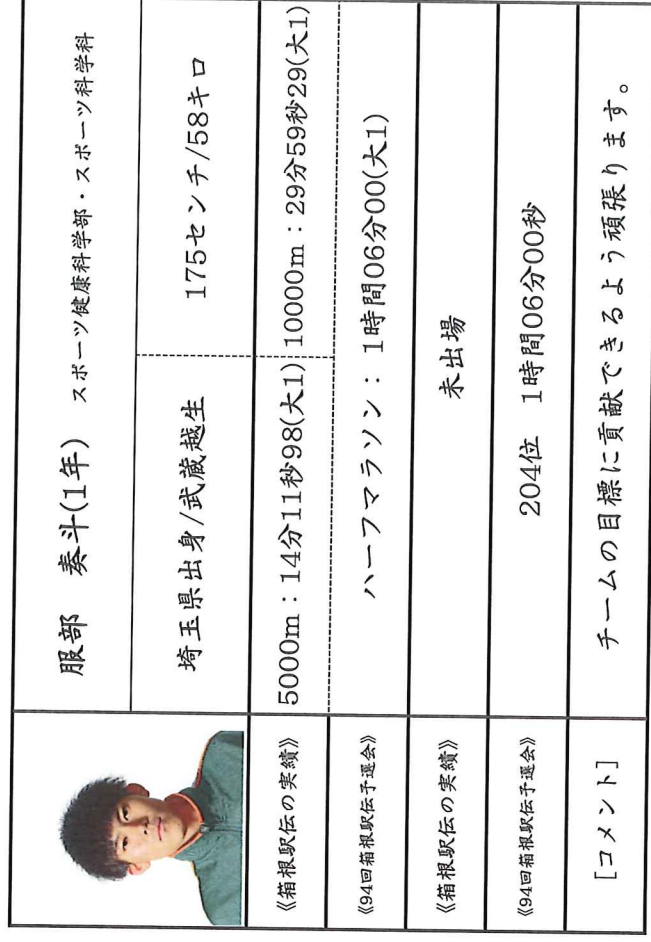 服部　奏斗(1年) スポーツ健康科学部・スポーツ科学科
埼玉県出身/武蔵越生 175センチ/58キロ
《箱根駅伝の実績》 5000m：14分11秒98(大1) 10000m：29分59秒29(大1)
《94回箱根駅伝予選会》 ハーフマラソン：1時間06分00(大1)
《箱根駅伝の実績》 未出場
《94回箱根駅伝予選会》 204位　1時間06分00秒
[コメント] チームの目標に貢献できるよう頑張ります。